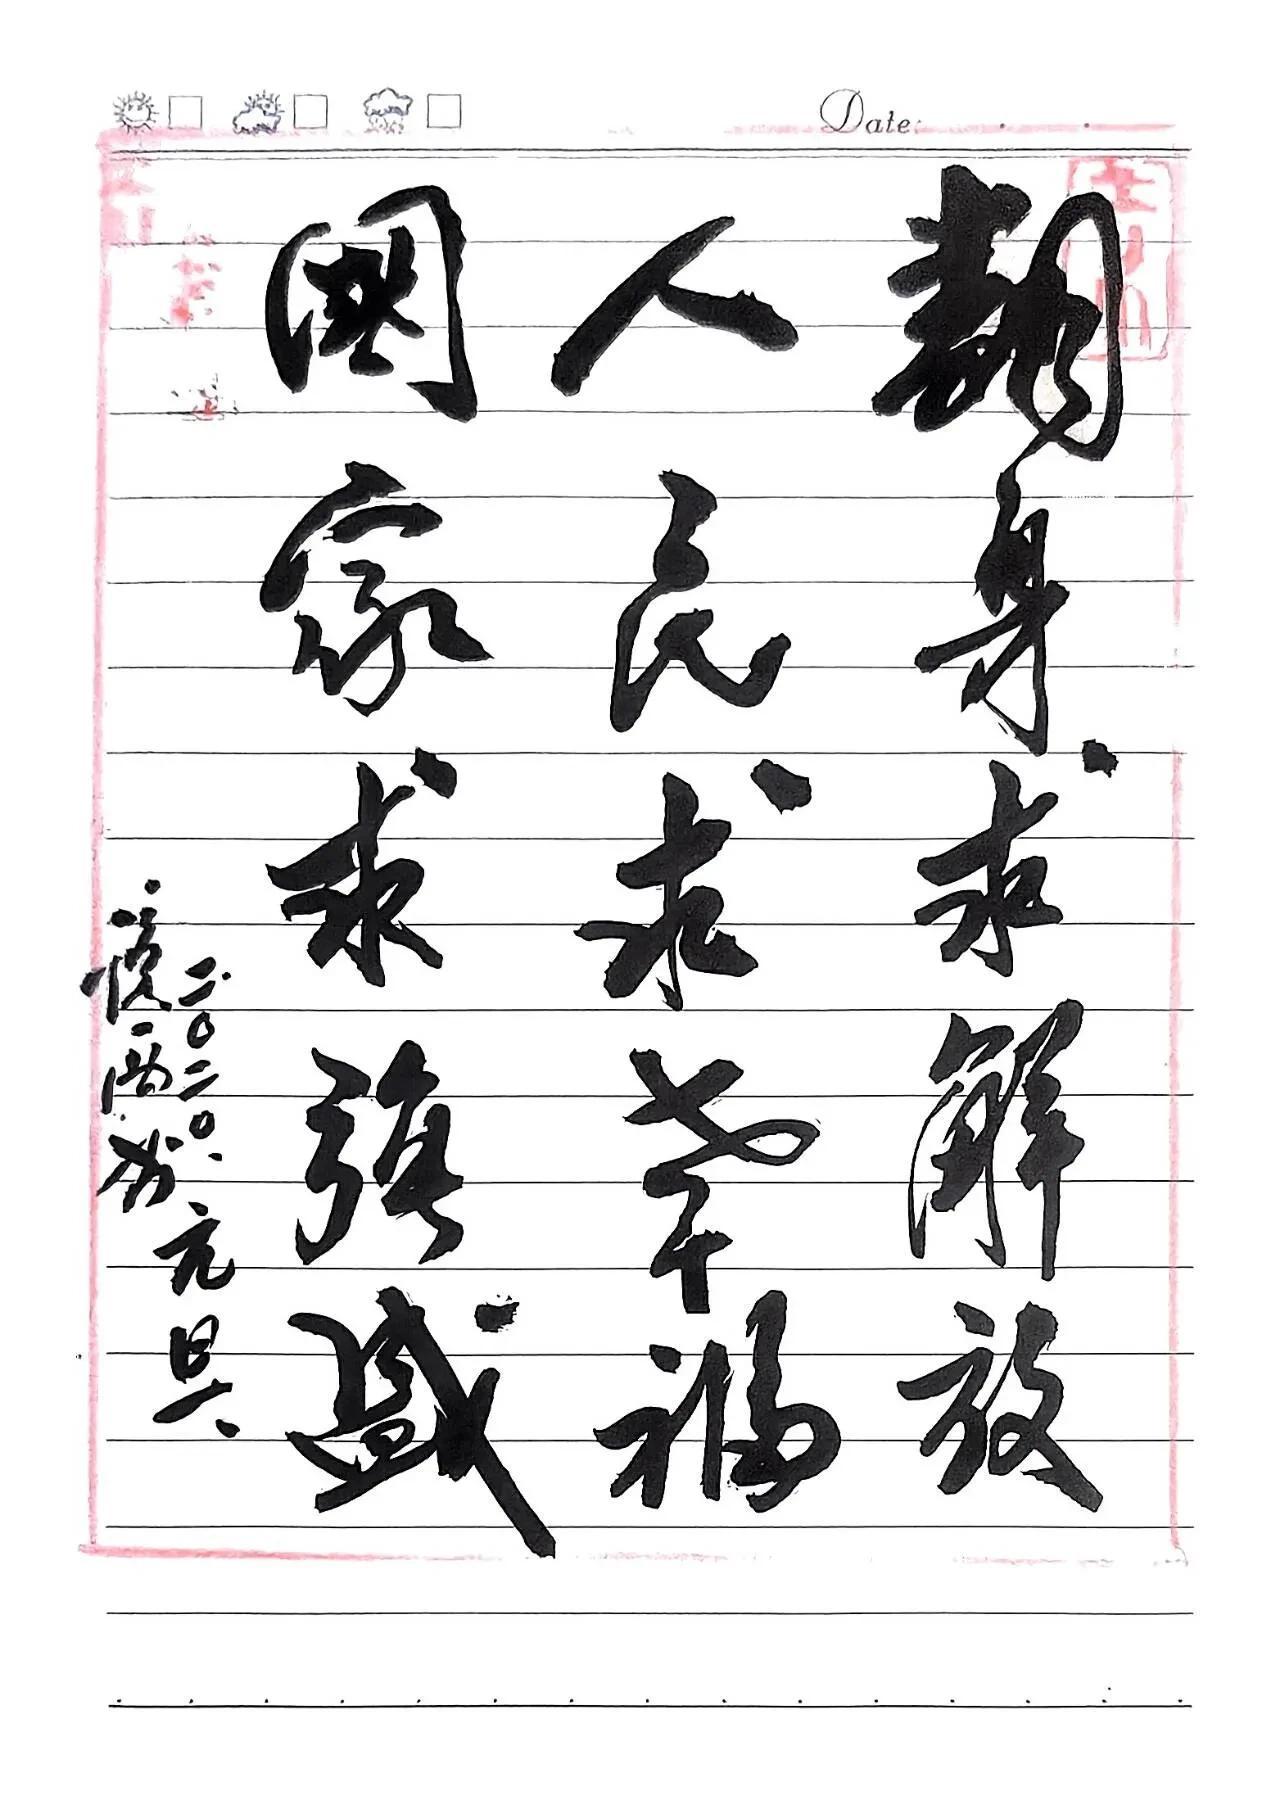 Date:
翻身求解放
人民求幸福
國家求強盛
二〇二〇.元旦